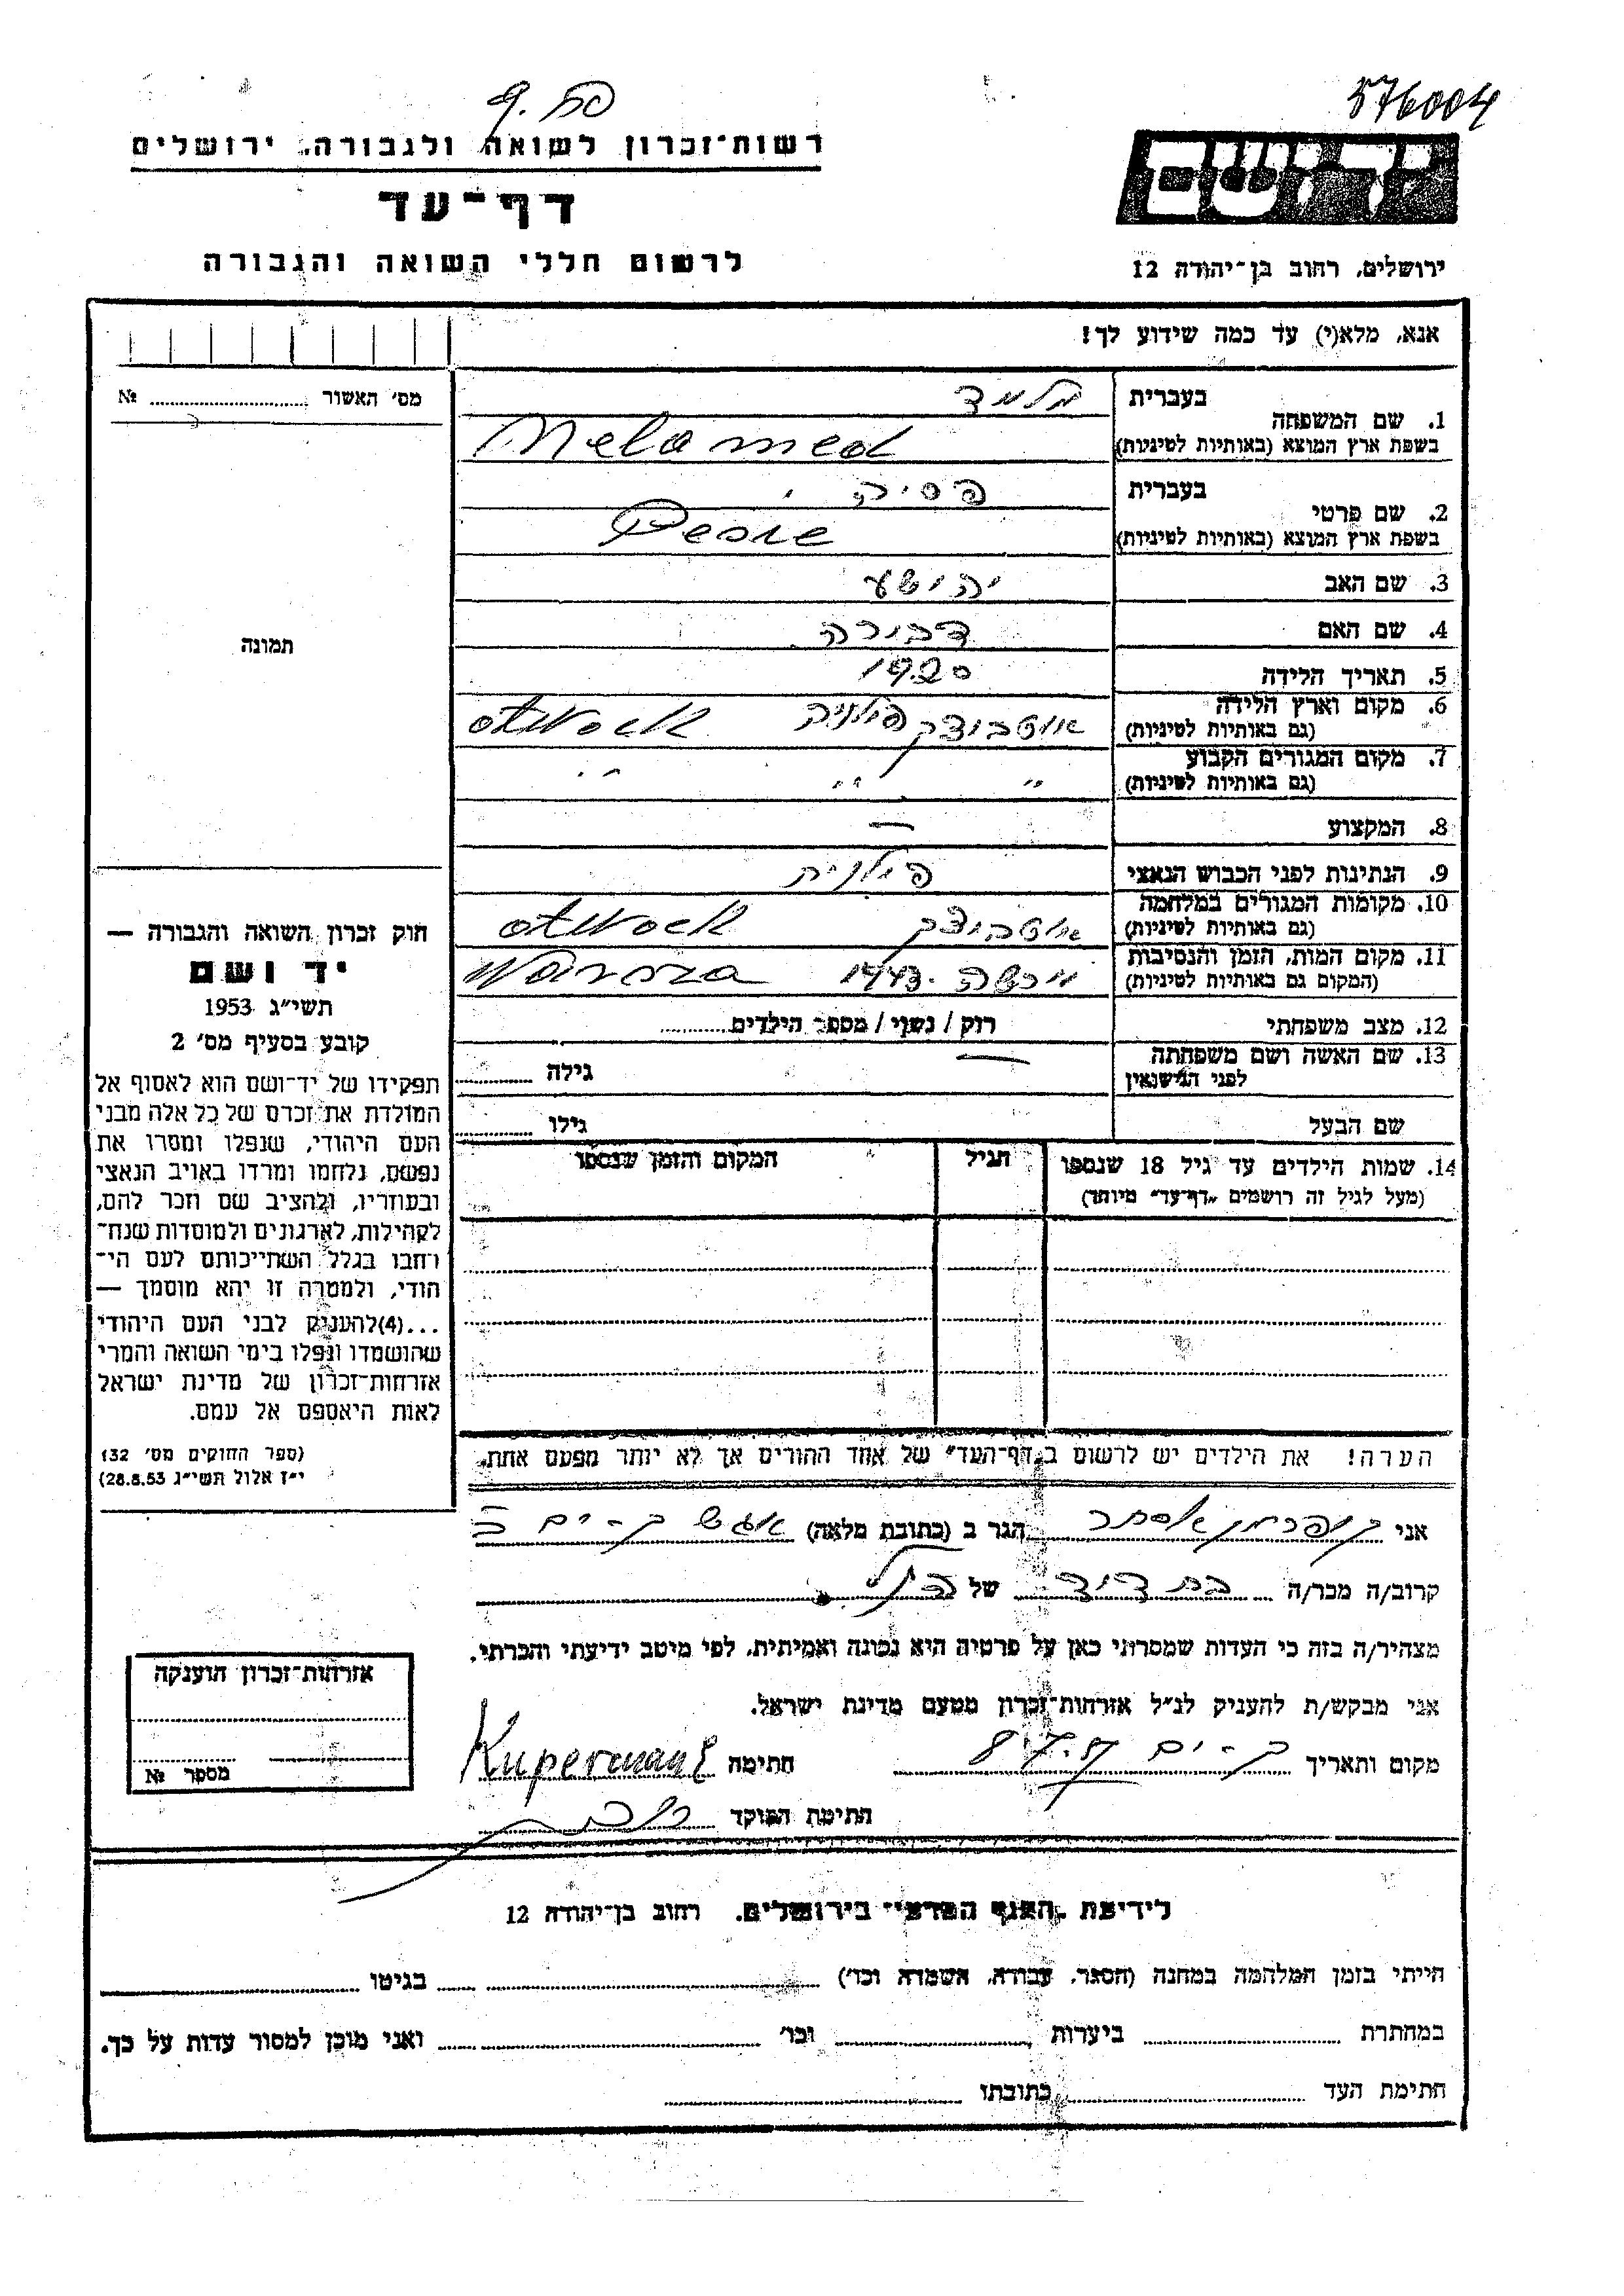 576004
יד ושם
ירושלים, רחוב בן־יהודה 12
רשות־זכרון לשואה ולגבורה, ירושלים
דף־עד
לרשום חללי השואה והגבורה
אנא, מלא(י) עד כמה שידוע לך!
מס' האשור № ........
תמונה
1. שם המשפחה בעברית מלמד
בשפת ארץ המוצא (באותיות לטיניות) Melamed
2. שם פרטי בעברית פסיה
בשפת ארץ המוצא (באותיות לטיניות) Pesie
3. שם האב יהושע
4. שם האם דבורה
5. תאריך הלידה 1920
6. מקום וארץ הלידה (גם באותיות לטיניות) אוטבוצק פולניה otwock
7. מקום המגורים הקבוע (גם באותיות לטיניות) " " "
8. המקצוע —
9. הנתינות לפני הכבוש הנאצי פולנית
10. מקומות המגורים במלחמה (גם באותיות לטיניות) אוטבוצק otwock
11. מקום המות, הזמן והנסיבות (המקום גם באותיות לטיניות) ורשה 1943 Warsza
12. מצב משפחתי רוק / נשוי / מספר הילדים........
13. שם האשה ושם משפחתה לפני הנישואין — גילה ........
שם הבעל גילו ........
14. שמות הילדים עד גיל 18 שנספו
(מעל לגיל זה רושמים "דף־עד" מיוחד)
הגיל
המקום והזמן שנספו
הערה! את הילדים יש לרשום ב"דף־העד" של אחד ההורים אך לא יותר מפעם אחת.
חוק זכרון השואה והגבורה —
יד ושם
תשי"ג 1953
קובע בסעיף מס' 2
תפקידו של יד־ושם הוא לאסוף אל
המולדת את זכרם של כל אלה מבני
העם היהודי, שנפלו ומסרו את
נפשם, נלחמו ומרדו באויב הנאצי
ובעוזריו, ולהציב שם וזכר להם,
לקהילות, לארגונים ולמוסדות שנח־
רחבו בגלל השתייכותם לעם הי־
הודי, ולמטרה זו יהא מוסמך —
...(4)להעניק לבני העם היהודי
שהושמדו ונפלו בימי השואה והמרי
אזרחות־זכרון של מדינת ישראל
לאות היאספם אל עמם.
(ספר החוקים מס' 132
י"ז אלול תשי"ג 28.8.53)
אני קופרמן אסתר הגר ב (כתובת מלאה)
קרוב/ה מכר/ה בת דוד של הנ"ל
מצהיר/ה בזה כי העדות שמסרתי כאן על פרטיה היא נכונה ואמיתית, לפי מיטב ידיעתי והכרתי.
אני מבקש/ת להעניק לנ"ל אזרחות־זכרון מטעם מדינת ישראל.
מקום ותאריך ק-ים 8.7.57 חתימה Kuperman E
חתימת הפוקד
אזרחות־זכרון הוענקה
מספר №
רחוב בן־יהודה 12
הייתי בזמן המלחמה במחנה (הסגר, עבודה, השמדה וכו') ........ בגיטו ........
במחתרת ........ ביערות ........ וכו' ........ ואני מוכן למסור עדות על כך.
חתימת העד ........ כתובתו ........